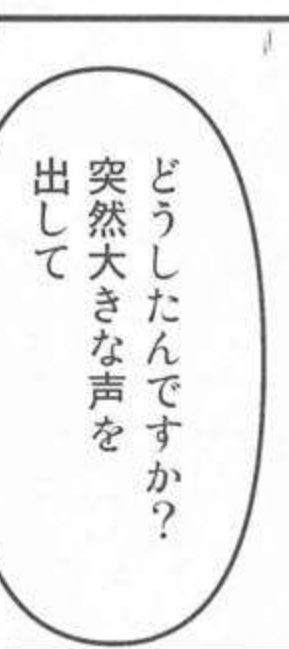 どうしたんですか？
突然大きな声を
出して